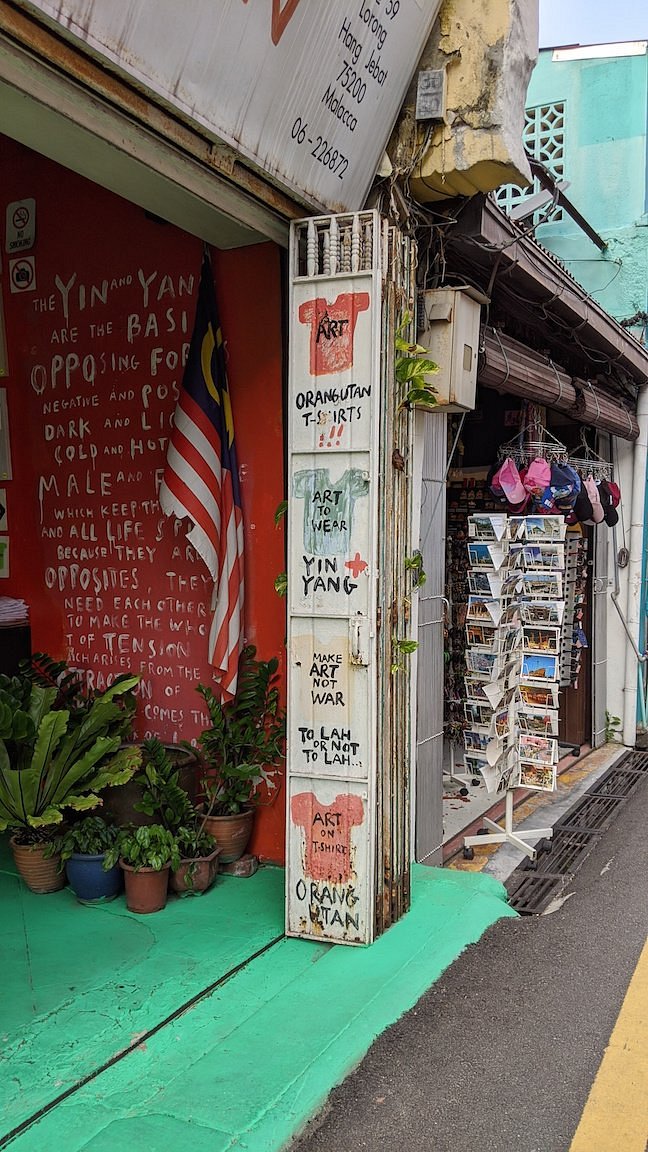 59
Lorong
Hang Jebat
75200
Malacca
06-226872
NO SMOKING
THE YIN AND YAN
ARE THE BASI
OPPOSING FOR
NEGATIVE AND POS
DARK AND LIG
COLD AND HOT
MALE AND F
WHICH KEEP TH
AND ALL LIFE S
BECAUSE THEY ARE
OPPOSITES, THEY
NEED EACH OTHER
TO MAKE THE WHO
T OF TENSION
CH ARISES FROM THE
TRACTION OF
COMES TH
ART
ORANGUTAN
T-SHIRTS
!!!
ART
TO
WEAR
YIN +
YANG
MAKE
ART
NOT
WAR
TO LAH
OR NOT
TO LAH...
ART
ON
T-SHIRT
ORANG
UTAN